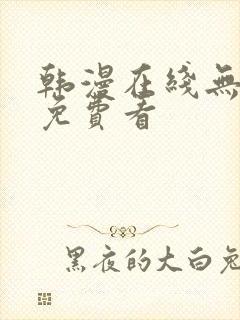 韩漫在线無
免費看
黑夜的大白兔